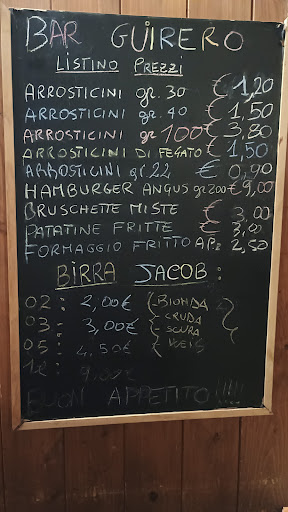 BAR GUIRERO
LISTINO PREZZI
ARROSTICINI gr. 30 € 1,20
ARROSTICINI gr. 40 € 1,50
ARROSTICINI gr 100 € 3,80
ARROSTICINI DI FEGATO € 1,50
ARROSTICINI gr. 22 € 0,90
HAMBURGER ANGUS gr 200 € 9,00
BRUSCHETTE MISTE € 3,00
PATATINE FRITTE € 3,00
FORMAGGIO FRITTO 2,50
BIRRA JACOB:
02: 2,00€ - BIONDA
03- 3,00€ - CRUDA
- SCURA
05: 4,50€ - WEIS
9,00€
BUON APPETITO!!!!!